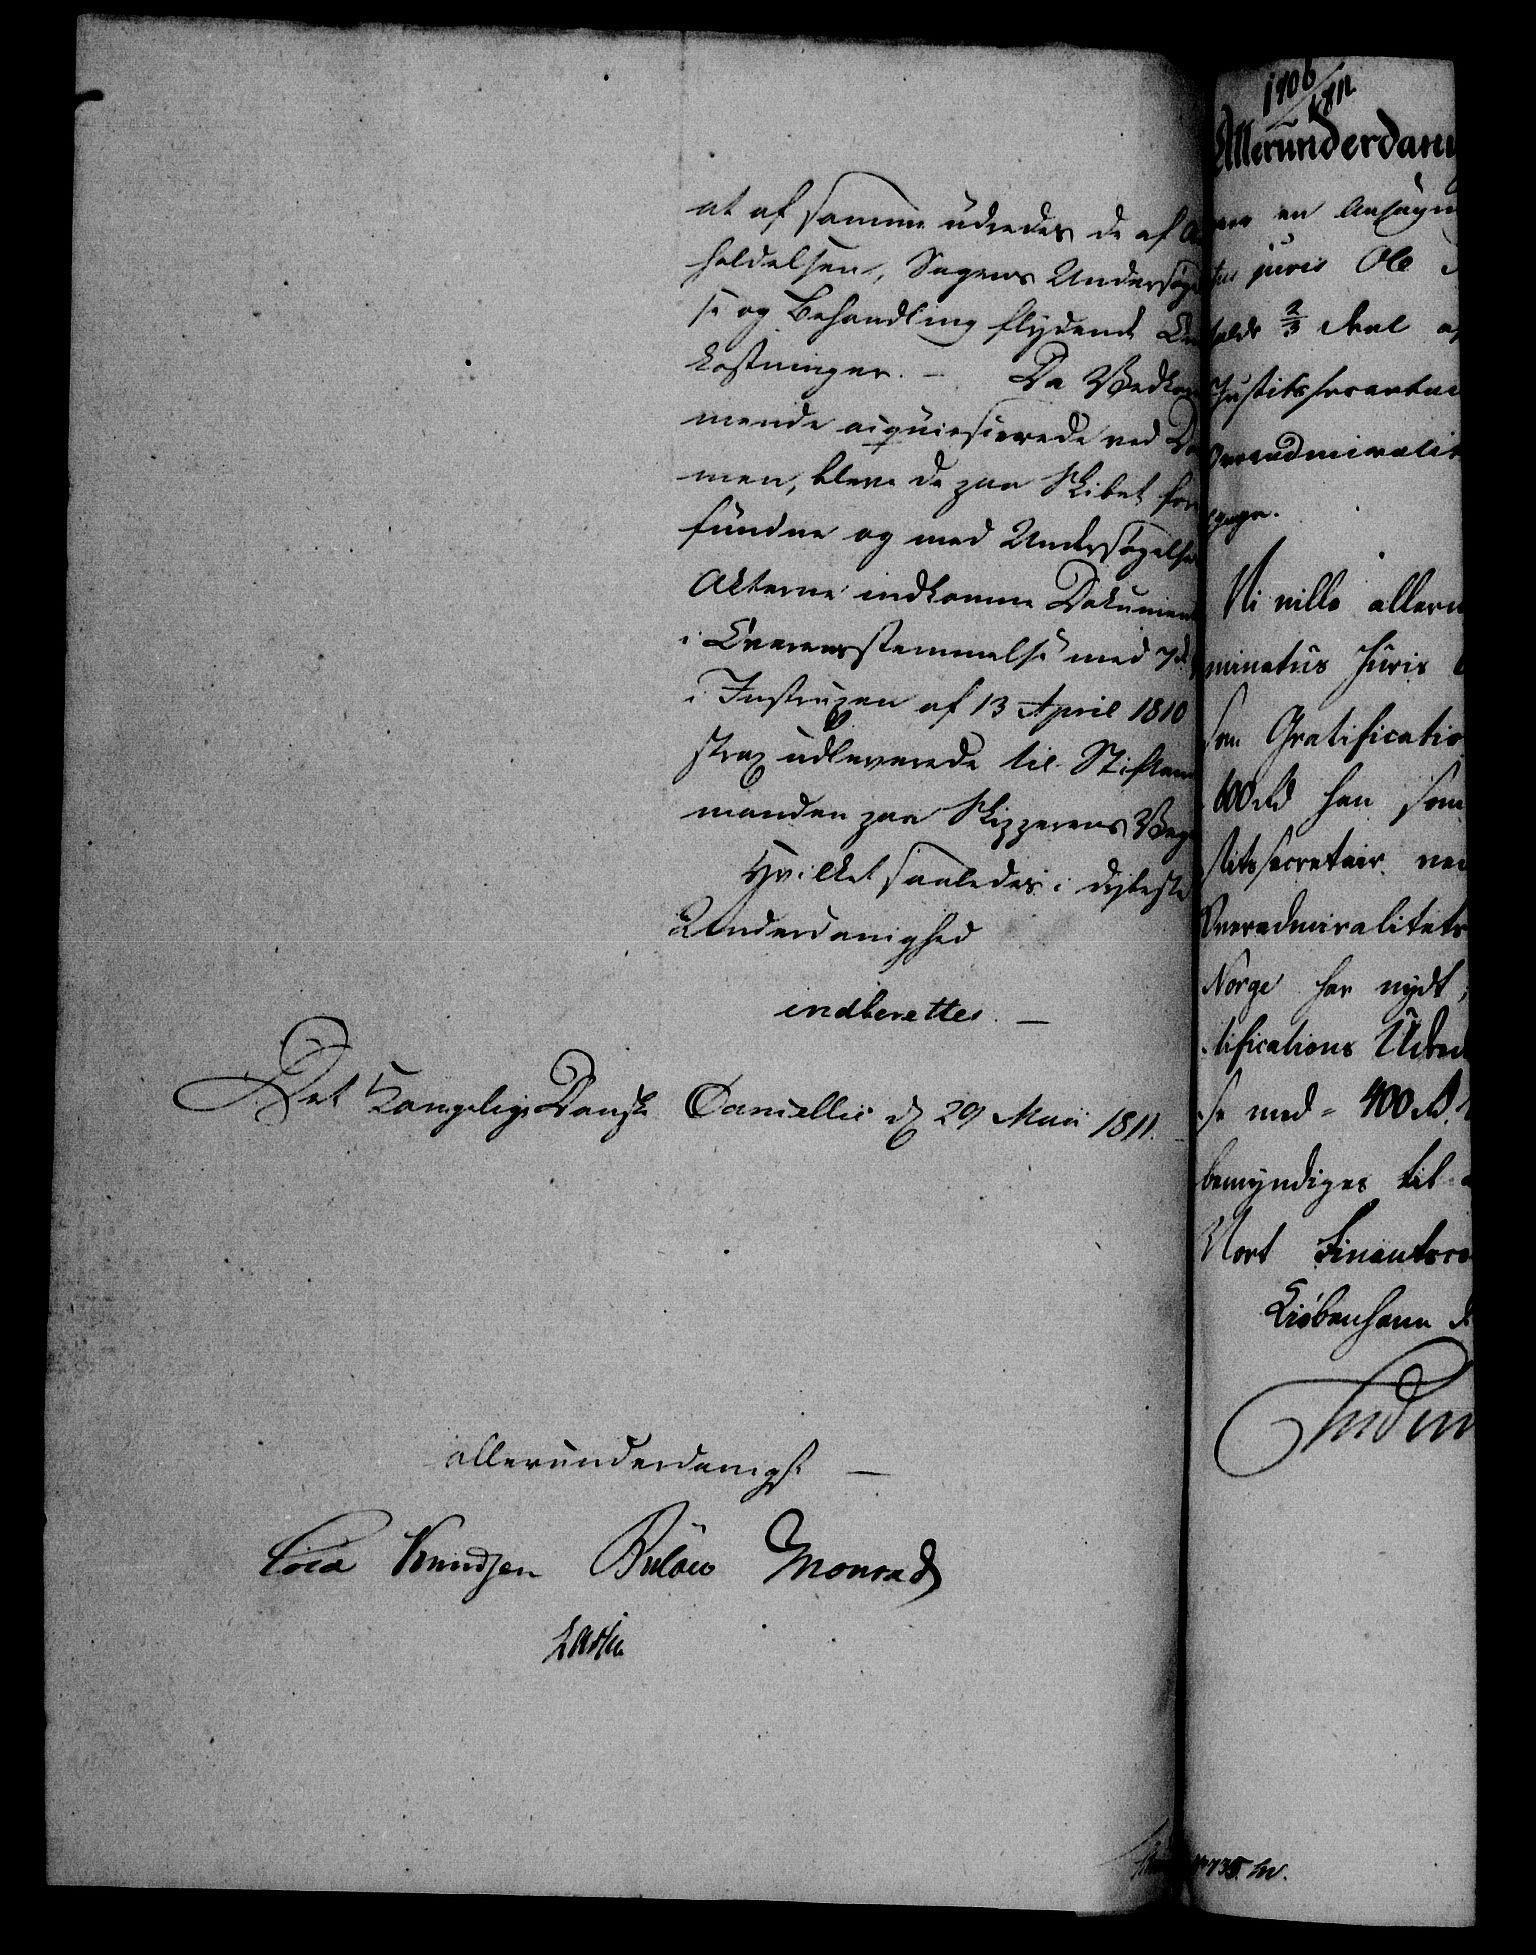 at af samme udredes de af
holdelsen, Sagens Undersøgel
se og Behandling flydende
kostninger. – Da Vedkom
mende acquiescerede ved Do
men, bleve de paa Skibet for
fundne og med Undersøgelses
Akterne indkomne Dokumen
i Overensstemmelse med 7de
i Instruxen af 13 April 1810
strax udleverede til Stiftam
manden paa Skipperens Veg
Hvilket saaledes i dybeste
Underdanighed
indberettes. –
Det Kongelige Danske Cancellie d. 29 Maii 1811.
allerunderdanigst –
Knudsen Bülow Monrad
1906/1811
Allerunderdani
en Ansøgn
juris Ole
2/3 Deel af
Justitssecretai
Overadmiralit
gage.
Vi ville allern
minatus Juris
som Gratificatio
600 rd han som
stitssecretair ved
Overadmiralitets
Norge har nydt,
tifications Udred
se med 400 rd.
bemyndiges til
Vort Finantsco
Kiøbenhavn d